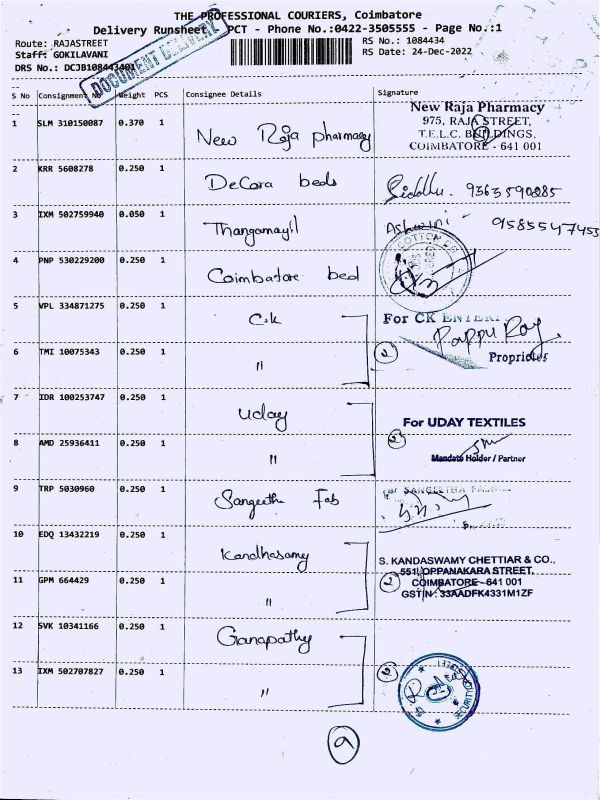 THE PROFESSIONAL COURIERS, Coimbatore
Delivery Runsheet PCT - Phone No.:0422-3505555 - Page No.:1
Route: RAJASTREET
Staff: GOKILAVANI
DRS No.: DCJB108443401
RS No.: 1084434
RS Date: 24-Dec-2022
DOCUMENT DELIVERY
S No Consignment No Weight PCS Consignee Details Signature
1 SLM 310150087 0.370 1 New Raja pharmacy
New Raja Pharmacy
975, RAJA STREET,
T.E.L.C. BUILDINGS,
COIMBATORE - 641 001
2 KRR 5608278 0.250 1 DeCora beds Siddhu. 9363590885
3 IXM 502759940 0.050 1 Thangamayil Ashwini - 9585547453
4 PNP 530229200 0.250 1 Coimbatore bed
COTTON
5 VPL 334871275 0.250 1 C.k
For CK ENTER
Pappu Roy
Proprietor
6 TMI 10075343 0.250 1 " 2
7 IDR 100253747 0.250 1 uday
For UDAY TEXTILES
8 AMD 25936411 0.250 1 " 2
Mandate Holder / Partner
9 TRP 5030960 0.250 1 Sangeetha Fab
SANGEETHA
10 EDQ 13432219 0.250 1 Kandhasamy
S. KANDASWAMY CHETTIAR & CO.,
551, OPPANAKARA STREET,
11 GPM 664429 0.250 1 " 2
COIMBATORE - 641 001
GSTIN : 33AADFK4331M1ZF
12 SVK 10341166 0.250 1 Ganapathy
13 IXM 502707827 0.250 1 " 2
SECURITIES
9